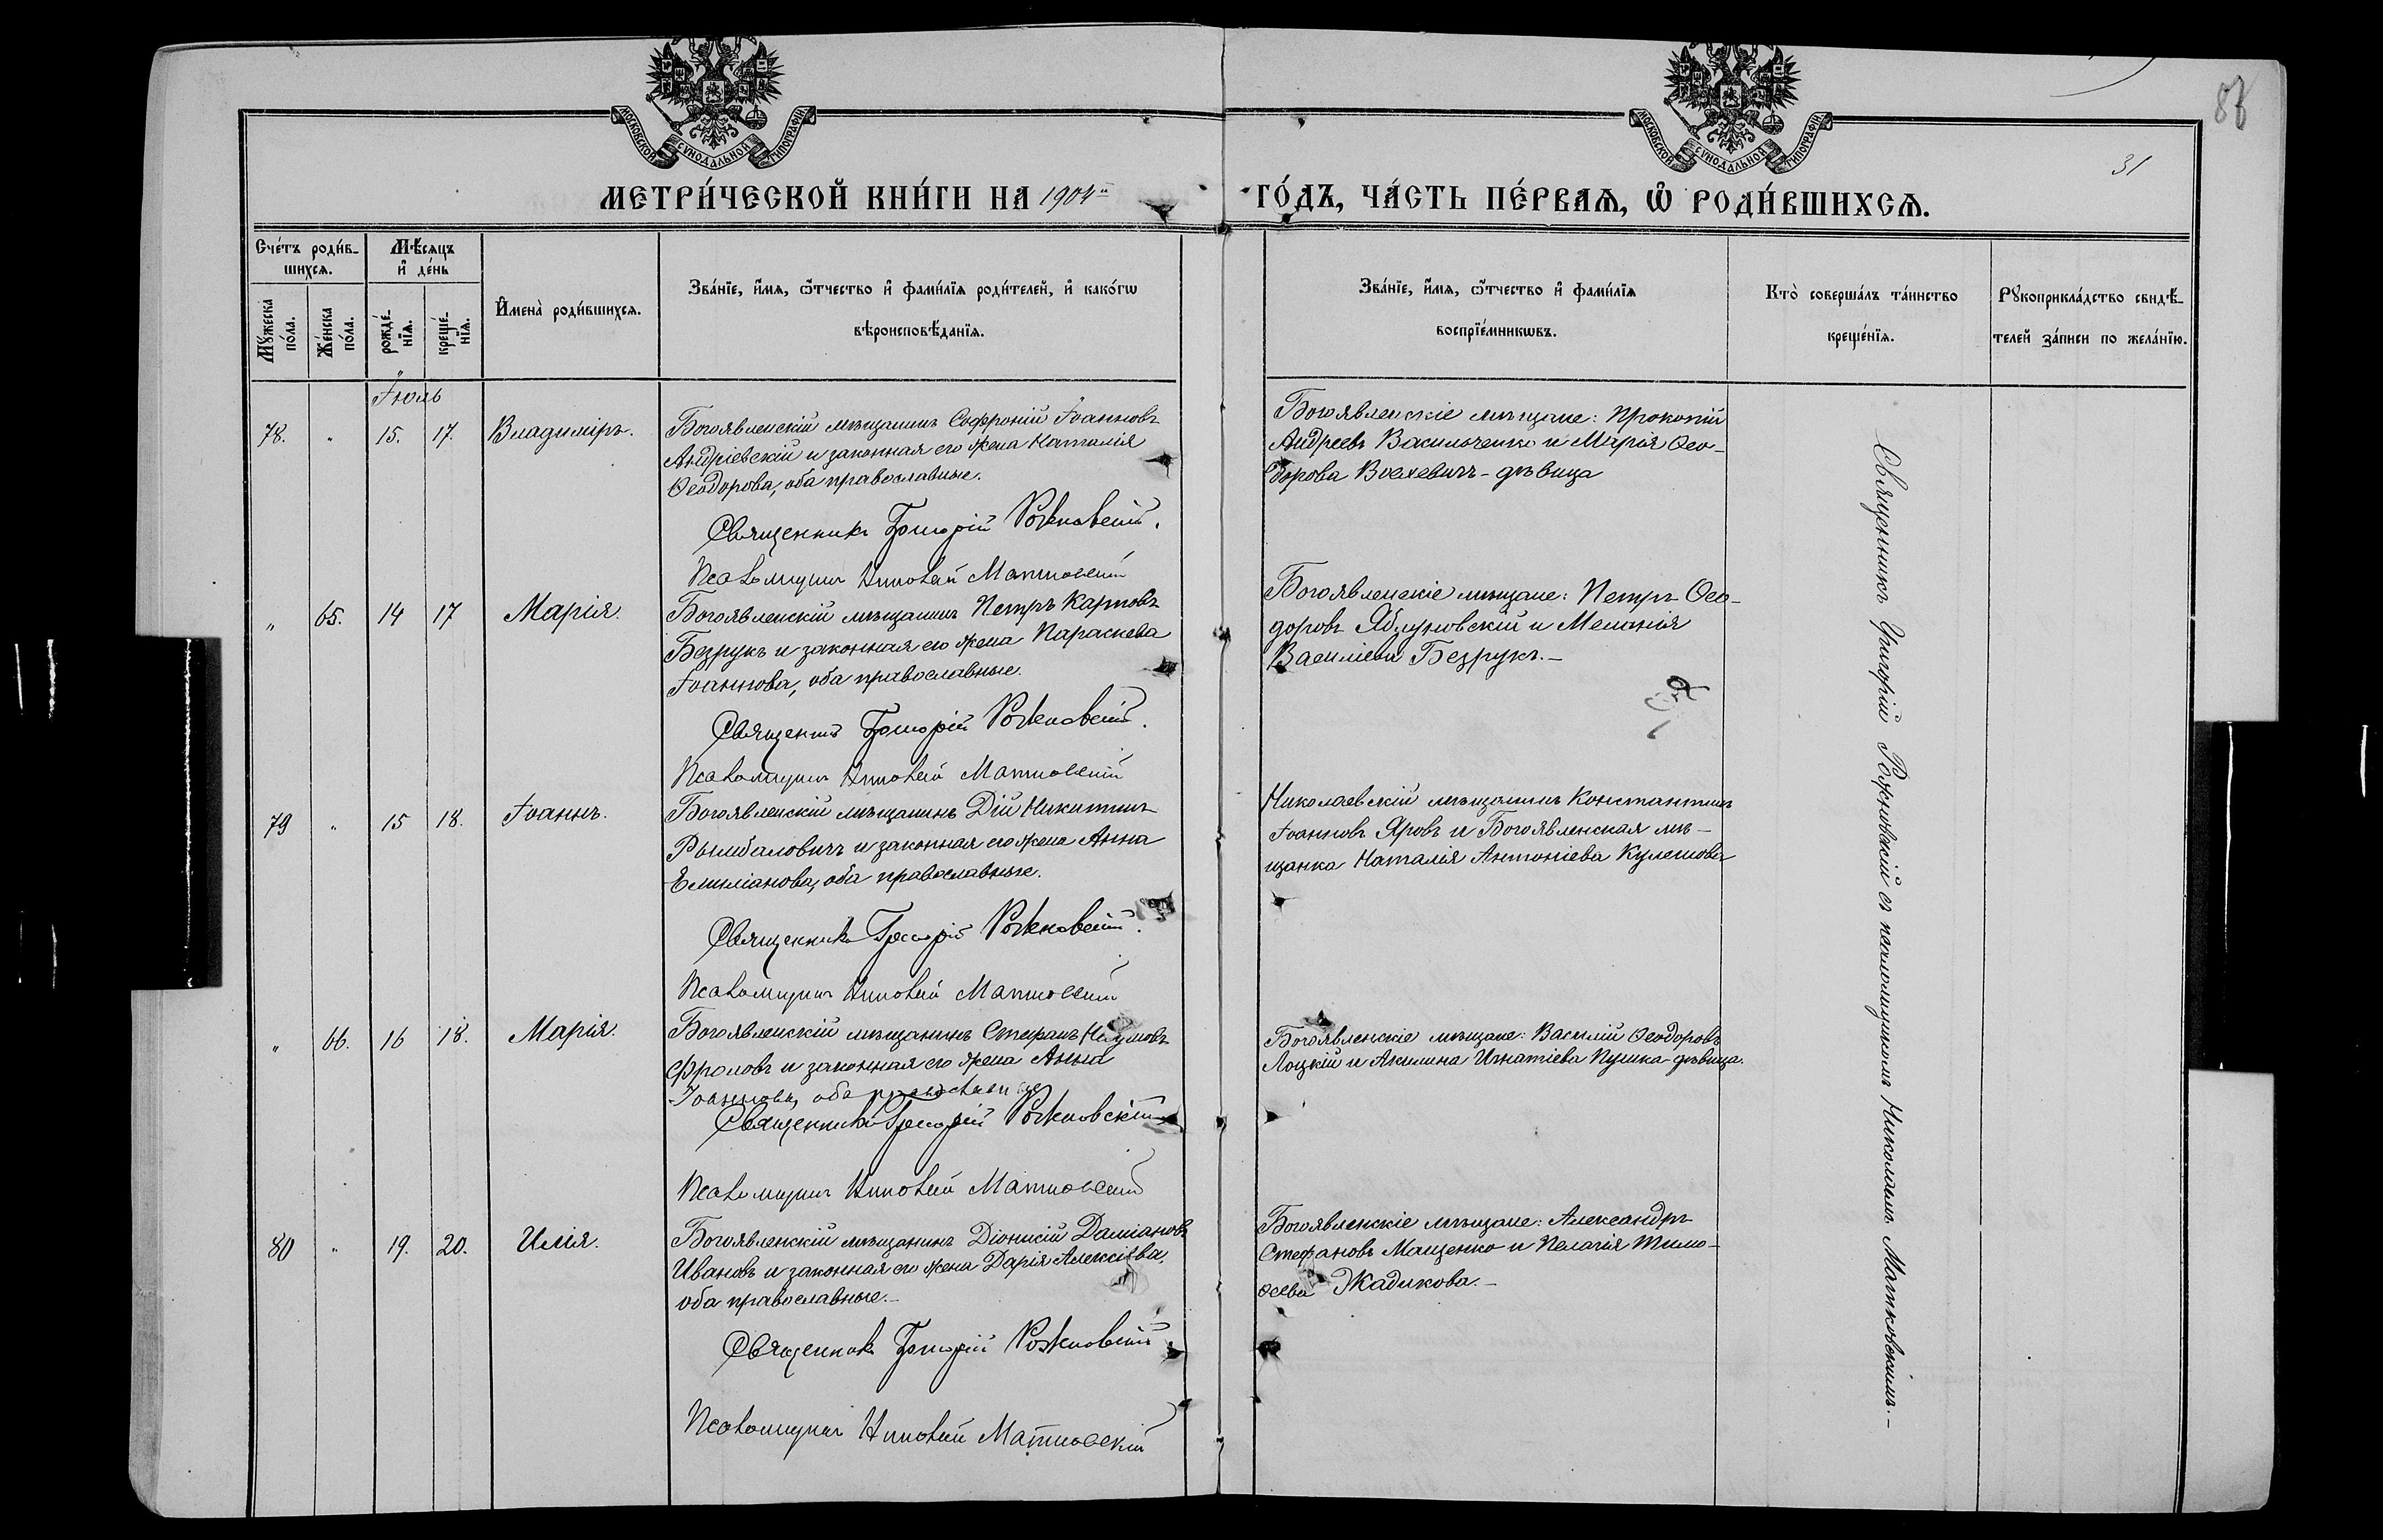 МОСКОВСКОЙ СУНОДАЛЬНОЙ ТИПОГРАФІИ
МОСКОВСКОЙ СУНОДАЛЬНОЙ ТИПОГРАФІИ
31
МЕТРИ́ЧЕСКОЙ КНИ́ГИ НА 1904й ГО́ДЪ, ЧА́СТЬ ПЕ́РВАѦ, Ѡ҆ РОДИ́ВШИХСѦ.
Сче́тъ роди́в-
шихсѧ.
Мѣ́сяцъ
и҆ де́нь
И҆мена̀ роди́вшихсѧ.
Зва́нїе, и҆́мѧ, ѻ҆́тчество и҆ фами́лїѧ роди́телей, и҆ како́гѡ
вѣроисповѣ́данїѧ.
Зва́нїе, и҆́мѧ, ѻ҆́тчество и҆ фами́лїѧ
воспрїе́мникѡвъ.
Кто̀ соверша́лъ та́инство
креще́нїѧ.
Рꙋкоприкла́дство свидѣ́-
телей за́писи по жела́нїю.
Мꙋ́жеска
по́ла.
Же́нска
по́ла.
рожде́-
нїѧ.
креще́-
нїѧ.
Іюль
78. " 15. 17. Владиміръ.
Богоявленскій мѣщанинъ Софроній Іоанновъ
Андріевскій и законная его жена Наталія
Ѳеодорова, оба православные.
Священникъ Григорій Рожновскій.
Псаломщикъ Николай Матковскій
Богоявленскіе мѣщане: Прокопій
Андреевъ Васильченко и Марія Ѳео-
дорова Воехевичъ - дѣвица
" 65. 14 17 Марія.
Богоявленскій мѣщанинъ Петръ Карповъ
Безрукъ и законная его жена Параскева
Іоаннова, оба православные.
Священникъ Григорій Рожновскій.
Псаломщикъ Николай Матковскій
Богоявленскіе мѣщане: Петръ Ѳео-
доровъ Яблуновскій и Меланія
Василіева Безрукъ.-
79 " 15 18. Іоаннъ.
Богоявленскій мѣщанинъ Дій Никитинъ
Рымбаловичъ и законная его жена Анна
Емиліанова, оба православные.
Священникъ Григорій Рожновскій.
Псаломщикъ Николай Матковскій
Николаевскій мѣщанинъ Константинъ
Іоанновъ Яровъ и Богоявленская мѣ-
щанка Наталія Антоніева Кулешова
" 66. 16 18. Марія.
Богоявленскій мѣщанинъ Стефанъ Наумовъ
Фроловъ и законная его жена Анна
Іоаннова, оба православные
Священникъ Григорій Рожновскій
Псаломщикъ Николай Матковскій
Богоявленскіе мѣщане: Василій Ѳеодоровъ
Лоцкій и Акилина Игнатіева Пушка - дѣвица.
80 " 19. 20. Илія.
Богоявленскій мѣщанинъ Діонисій Даміановъ
Ивановъ и законная его жена Дарія Алексіева,
оба православные.-
Священникъ Григорій Рожновскій.
Псаломщикъ Николай Матковскій
Богоявленскіе мѣщане: Александръ
Стефановъ Мащенко и Пелагія Тимо-
ѳеева Жадикова.-
Священникъ Григорій Рожновскій съ псаломщикомъ Николаемъ Матковскимъ.-